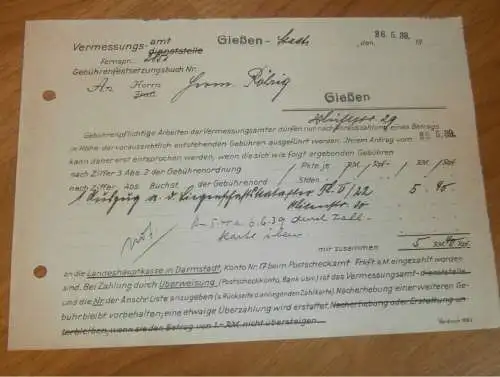 Vermessungs-amt Gießen-Stadt
dienststelle , den 26.5.39. 19
Fernspr. 2151
Gebührenfestsetzungsbuch Nr.
An Herrn Herrn Röhrig
Firma
Gießen
29
Gebührenpflichtige Arbeiten der Vermessungsämter dürfen nur nach Vorauszahlung eines Betrags
in Höhe der voraussichtlich entstehenden Gebühren ausgeführt werden. Ihrem Antrag vom 26.5.39.
kann daher erst entsprochen werden, wenn die sich wie folgt ergebenden Gebühren
nach Ziffer 3 Abs. 2 der Gebührenordnung Pkte. je RM. Rpf.- RM. Rpf.
nach Ziffer Abs. Buchst. der Gebührenord Stden.
1 Auszug a. d. Liegenschaftskataster Fl. VI/22 5. 40
5.40 a. 6.6.39 durch Zahl-
karte üben
mit zusammen 5 RM. 40 Rpf.
an die Landeshauptkasse in Darmstadt, Konto Nr. 17 beim Postscheckamt Frkft a.M eingezahlt worden
sind. Bei Zahlung durch Überweisung (Postscheckkonto, Bank usw.) ist das Vermessungsamt-dienststelle
und die Nr der Anschr. Liste anzugeben (s. Rückseite d. anliegenden Zahlkarte) Nacherhebung einer weiteren Ge-
bühr bleibt vorbehalten; eine etwaige Überzahlung wird erstattet. Nacherhebung oder Erstattung un-
terbleiben, wenn sie den Betrag von 1.- RM. nicht übersteigen.